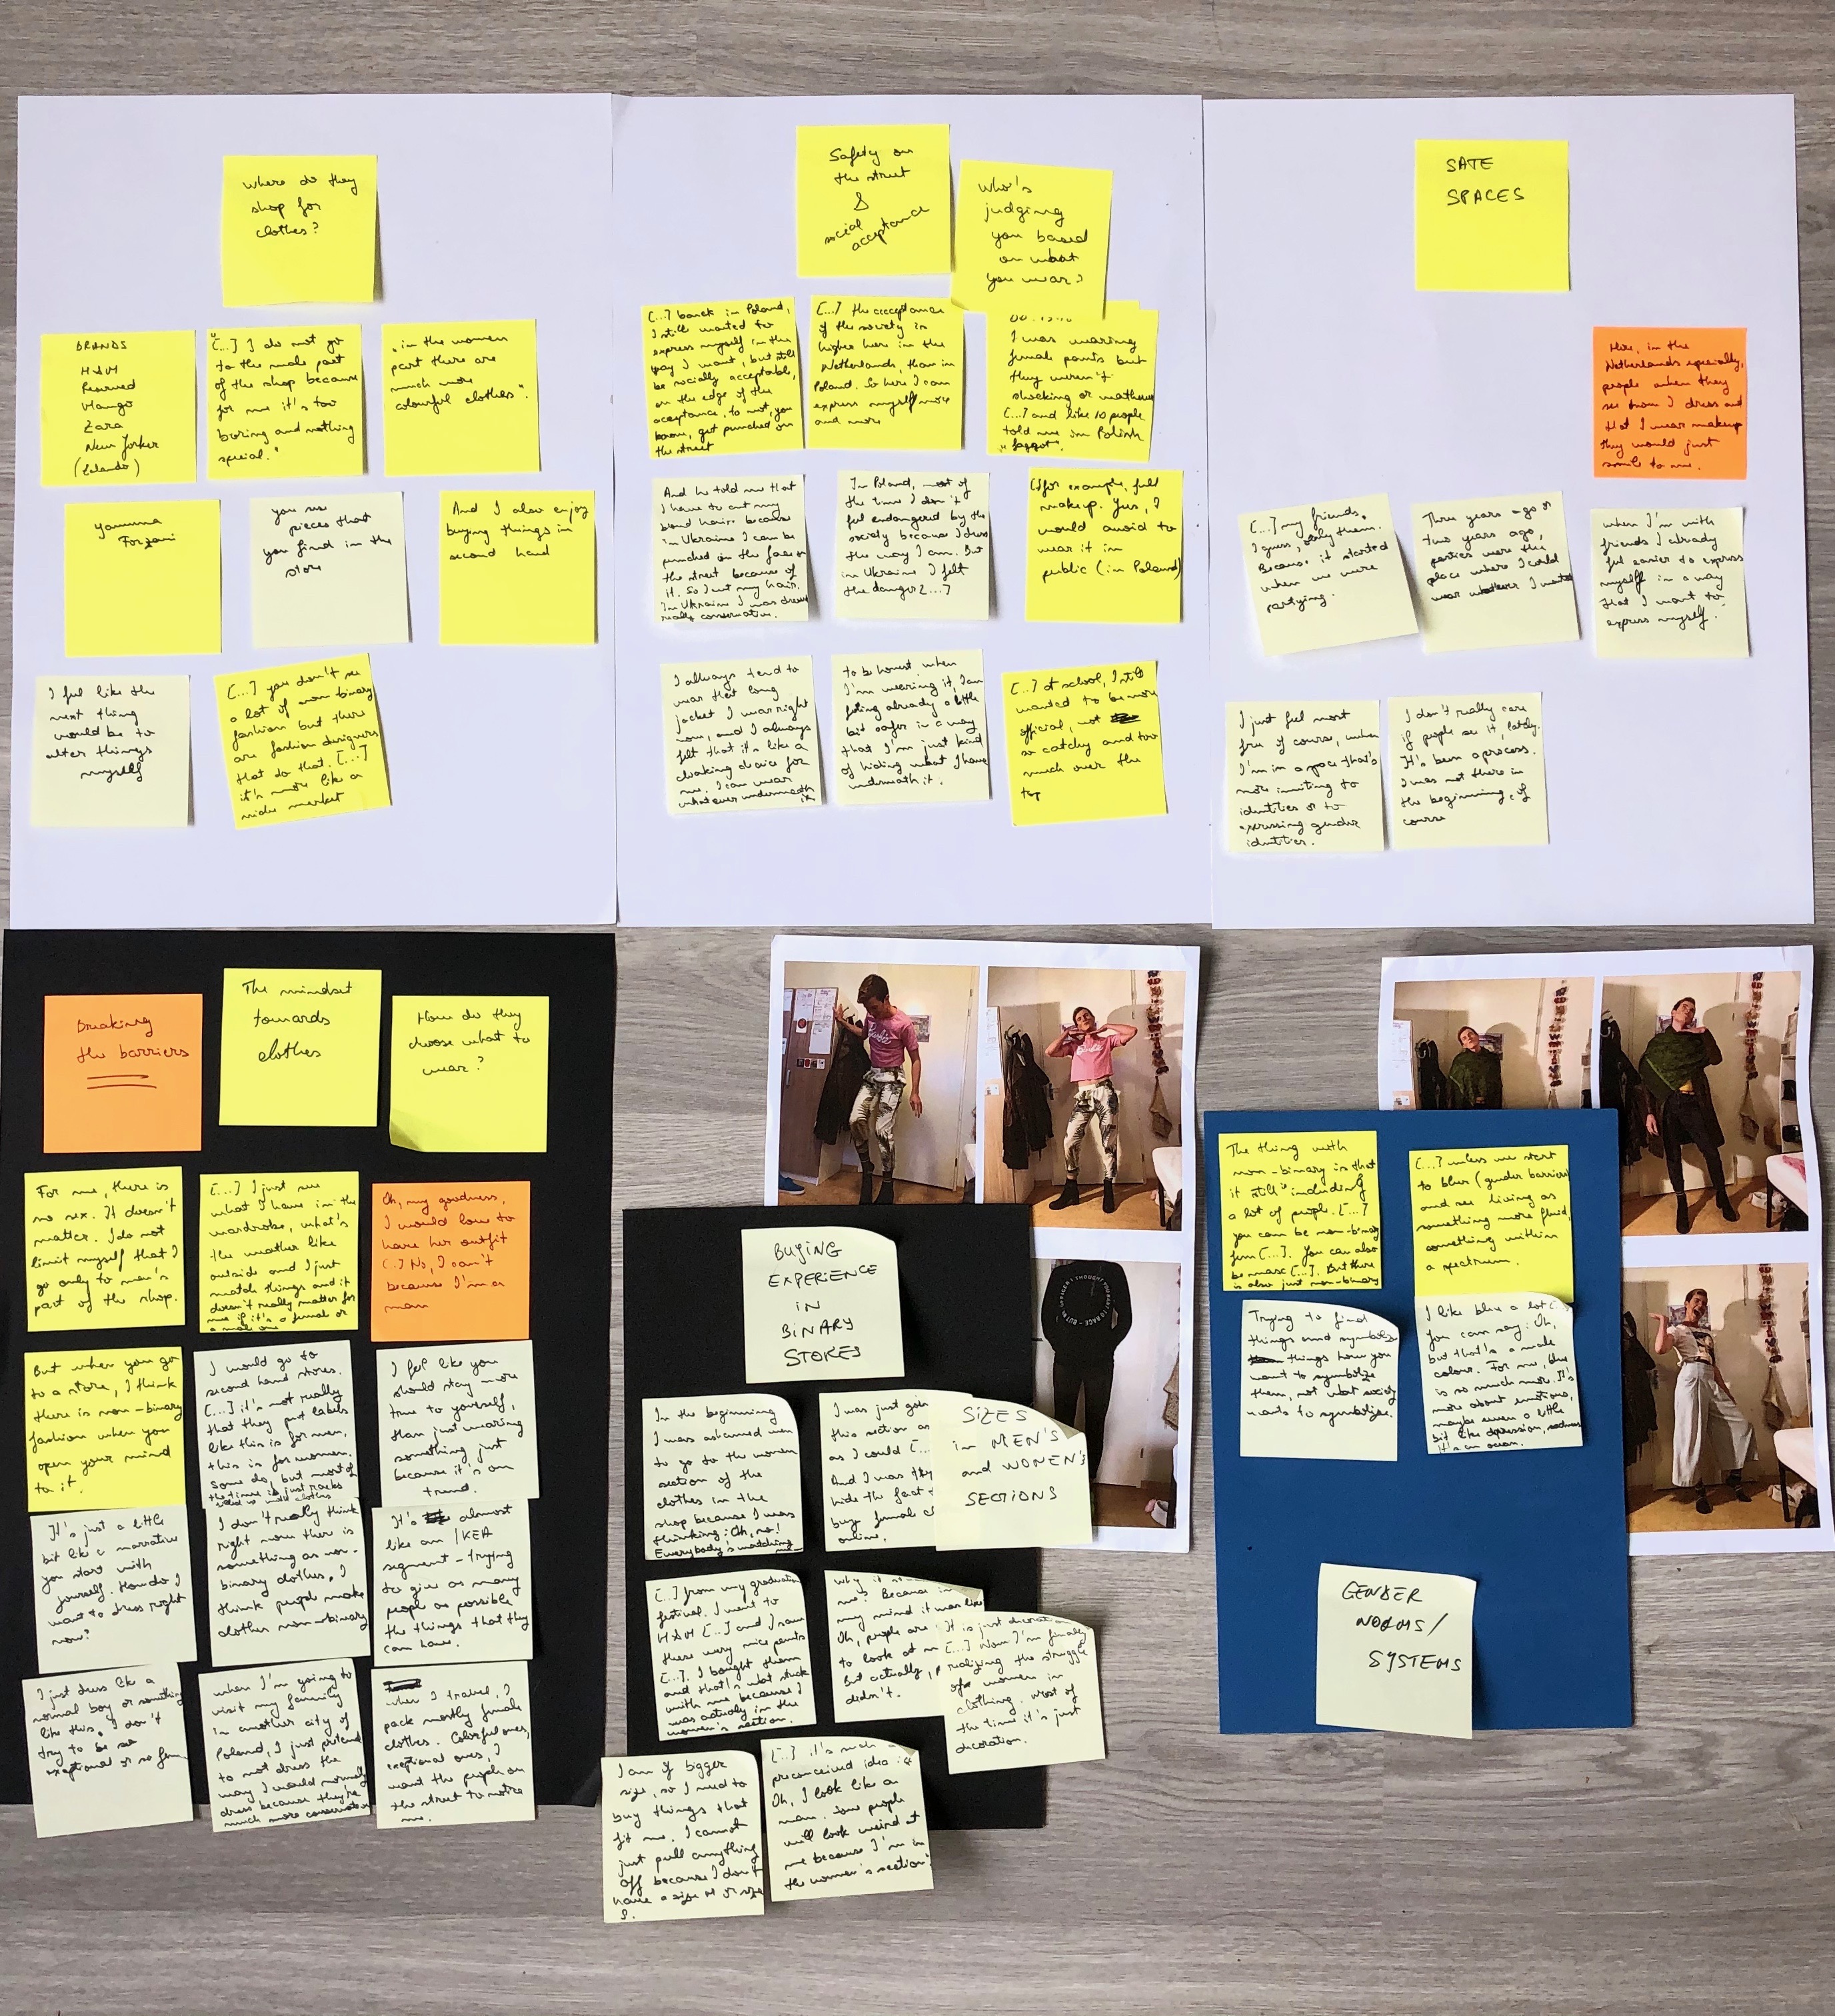 where do they
shop for
clothes?
BRANDS
H&M
Reserved
Mango
Zara
New Yorker
(Zalando)
"[...] I do not go
to the male part
of the shop because
for me it's too
boring and nothing
special."
"in the women
part there are
much more
colourful clothes".
Yamuna
Forzani
you see
pieces that
you find in the
store
And I also enjoy
buying things in
second hand
I feel like the
next thing
would be to
alter things
myself
[...] you don't see
a lot of non-binary
fashion but there
are fashion designers
that do that. [...]
it's more like a
niche market
Safety on
the street
&
social
acceptance
Who's
judging
you based
on what
you wear?
[...] back in Poland,
I still wanted to
express myself in the
way I want, but still
be socially acceptable,
on the edge of the
acceptance, to not, you
know, get punched on
the street
[...] the acceptance
of the society is
higher here in the
Netherlands, than in
Poland. So here I can
express myself more
and more
I was wearing
female pants but
they weren't
shocking or
[...] and like 10 people
told me in Polish
"faggot".
And he told me that
I have to cut my
blond hair. because
in Ukraine I can be
punched in the face on
the street because of
it. So I cut my hair.
In Ukraine I was dressed
really conservative.
In Poland, most of
the time I don't
feel endangered by the
society because I dress
the way I am. But
in Ukraine I felt
the danger [...]
for example, full
makeup. Yes, I
would avoid to
wear it in
public (in Poland)
I always tend to
wear that long
jacket I wear right
now, and I always
felt that it's like a
cloaking device for
me. I can wear
whatever underneath
it
to be honest when
I'm wearing it, I am
feeling already a little
bit safer in a way
that I'm just kind
of hiding what I have
underneath it.
[...] at school, I still
wanted to be more
official, not
so catchy and too
much over the
top
SAFE
SPACES
Here, in the
Netherlands specially,
people when they
see how I dress and
that I wear makeup
they would just
smile to me.
[...] my friends,
I guess, only them.
Because it started
when we were
partying.
Three years ago or
two years ago,
parties were the
place where I could
wear whatever I wanted
when I'm with
friends I already
feel easier to express
myself in a way
that I want to
express myself.
I just feel most
free of course, when
I'm in a space that's
more inviting to
identities or to
expressing gender
identities.
I don't really care
if people see it, lately.
It's been a process.
I was not there in
the beginning, of
course
Breaking
the barriers
The mindset
towards
clothes
How do they
choose what to
wear?
For me, there is
no sex. It doesn't
matter. I do not
limit myself that I
go only to men's
part of the shop.
[...] I just see
what I have in the
wardrobe, what's
the weather like
outside and I just
match things and it
doesn't really matter for
me if it's a female or
a male one
Oh, my goodness,
I would love to
have her outfit
(..) No, I can't
because I'm a
man
But when you go
to a store, I think
there is non-binary
fashion when you
open your mind
to it.
I would go to
second hand stores.
[...] it's not really
that they put labels
like this is for men,
this is for women.
Some do, but most of
the time is just racks
with clothes
I feel like you
should stay more
true to yourself,
than just wearing
something just
because it's on
trend.
It's just a little
bit like a narrative
you start with
yourself. How do I
want to dress right
now?
I don't really think
right now there is
something as non-
binary clothes. I
think people make
clothes non-binary
It's almost
like an IKEA
segment - trying
to give as many
people as possible
the things that they
can have.
I just dress like a
normal boy or something
like this. I don't
try to be so
exceptional or so
when I'm going to
visit my family
in another city of
Poland, I just pretend
to not dress the
way I would normally
dress because they're
much more conservative
when I travel, I
pack mostly female
clothes. Colorful ones,
exceptional ones, I
want the people on
the street to notice
me.
Barbie
BUYING
EXPERIENCE
IN
BINARY
STORES
In the beginning
I was ashamed even
to go to the women
section of the
clothes in the
shop because I was
thinking: Oh, no!
Everybody's watching
I was just goin
this section as
as I could [...
And I was try
hide the fact t
buy female cl
online.
SIZES
in MEN'S
and WOMEN'S
SECTIONS
[...] from my graduation
festival. I went to
H&M [...] and I saw
these very nice pants
[...]. I bought them
and that's what stuck
with me because I
was actually in the
women's section.
why it
me? Because in
my mind it was like
Oh, people are
to look at m
But actually,
didn't.
It is just decoration
[...] Now I'm finally
realizing the struggle
of women in
clothing. Most of
the time it's just
decoration.
I am of bigger
size, so I need to
buy things that
fit me. I cannot
just pull anything
off because I don't
have a size M or size
S.
[...] it's such a
preconceived idea:
Oh, I look like a
man. Some people
will look weird at
me because I'm in
the women's section.
The thing with
non-binary is that
it still is including
a lot of people. [...]
you can be non-binary
fem [...]. You can also
be masc [...]. But there
is also just non-binary
[...] unless we start
to blur (gender barriers)
and see living as
something more fluid,
something within
a spectrum.
Trying to find
things and symbolize
things how you
want to symbolize
them, not what society
wants to symbolize.
I like blue a lot [...]
you can say: Oh,
but that's a male
colour. For me, blue
is so much more. It's
more about emotions,
maybe even a little
bit like depression, sadness
It's an ocean.
GENDER
NORMS/
SYSTEMS